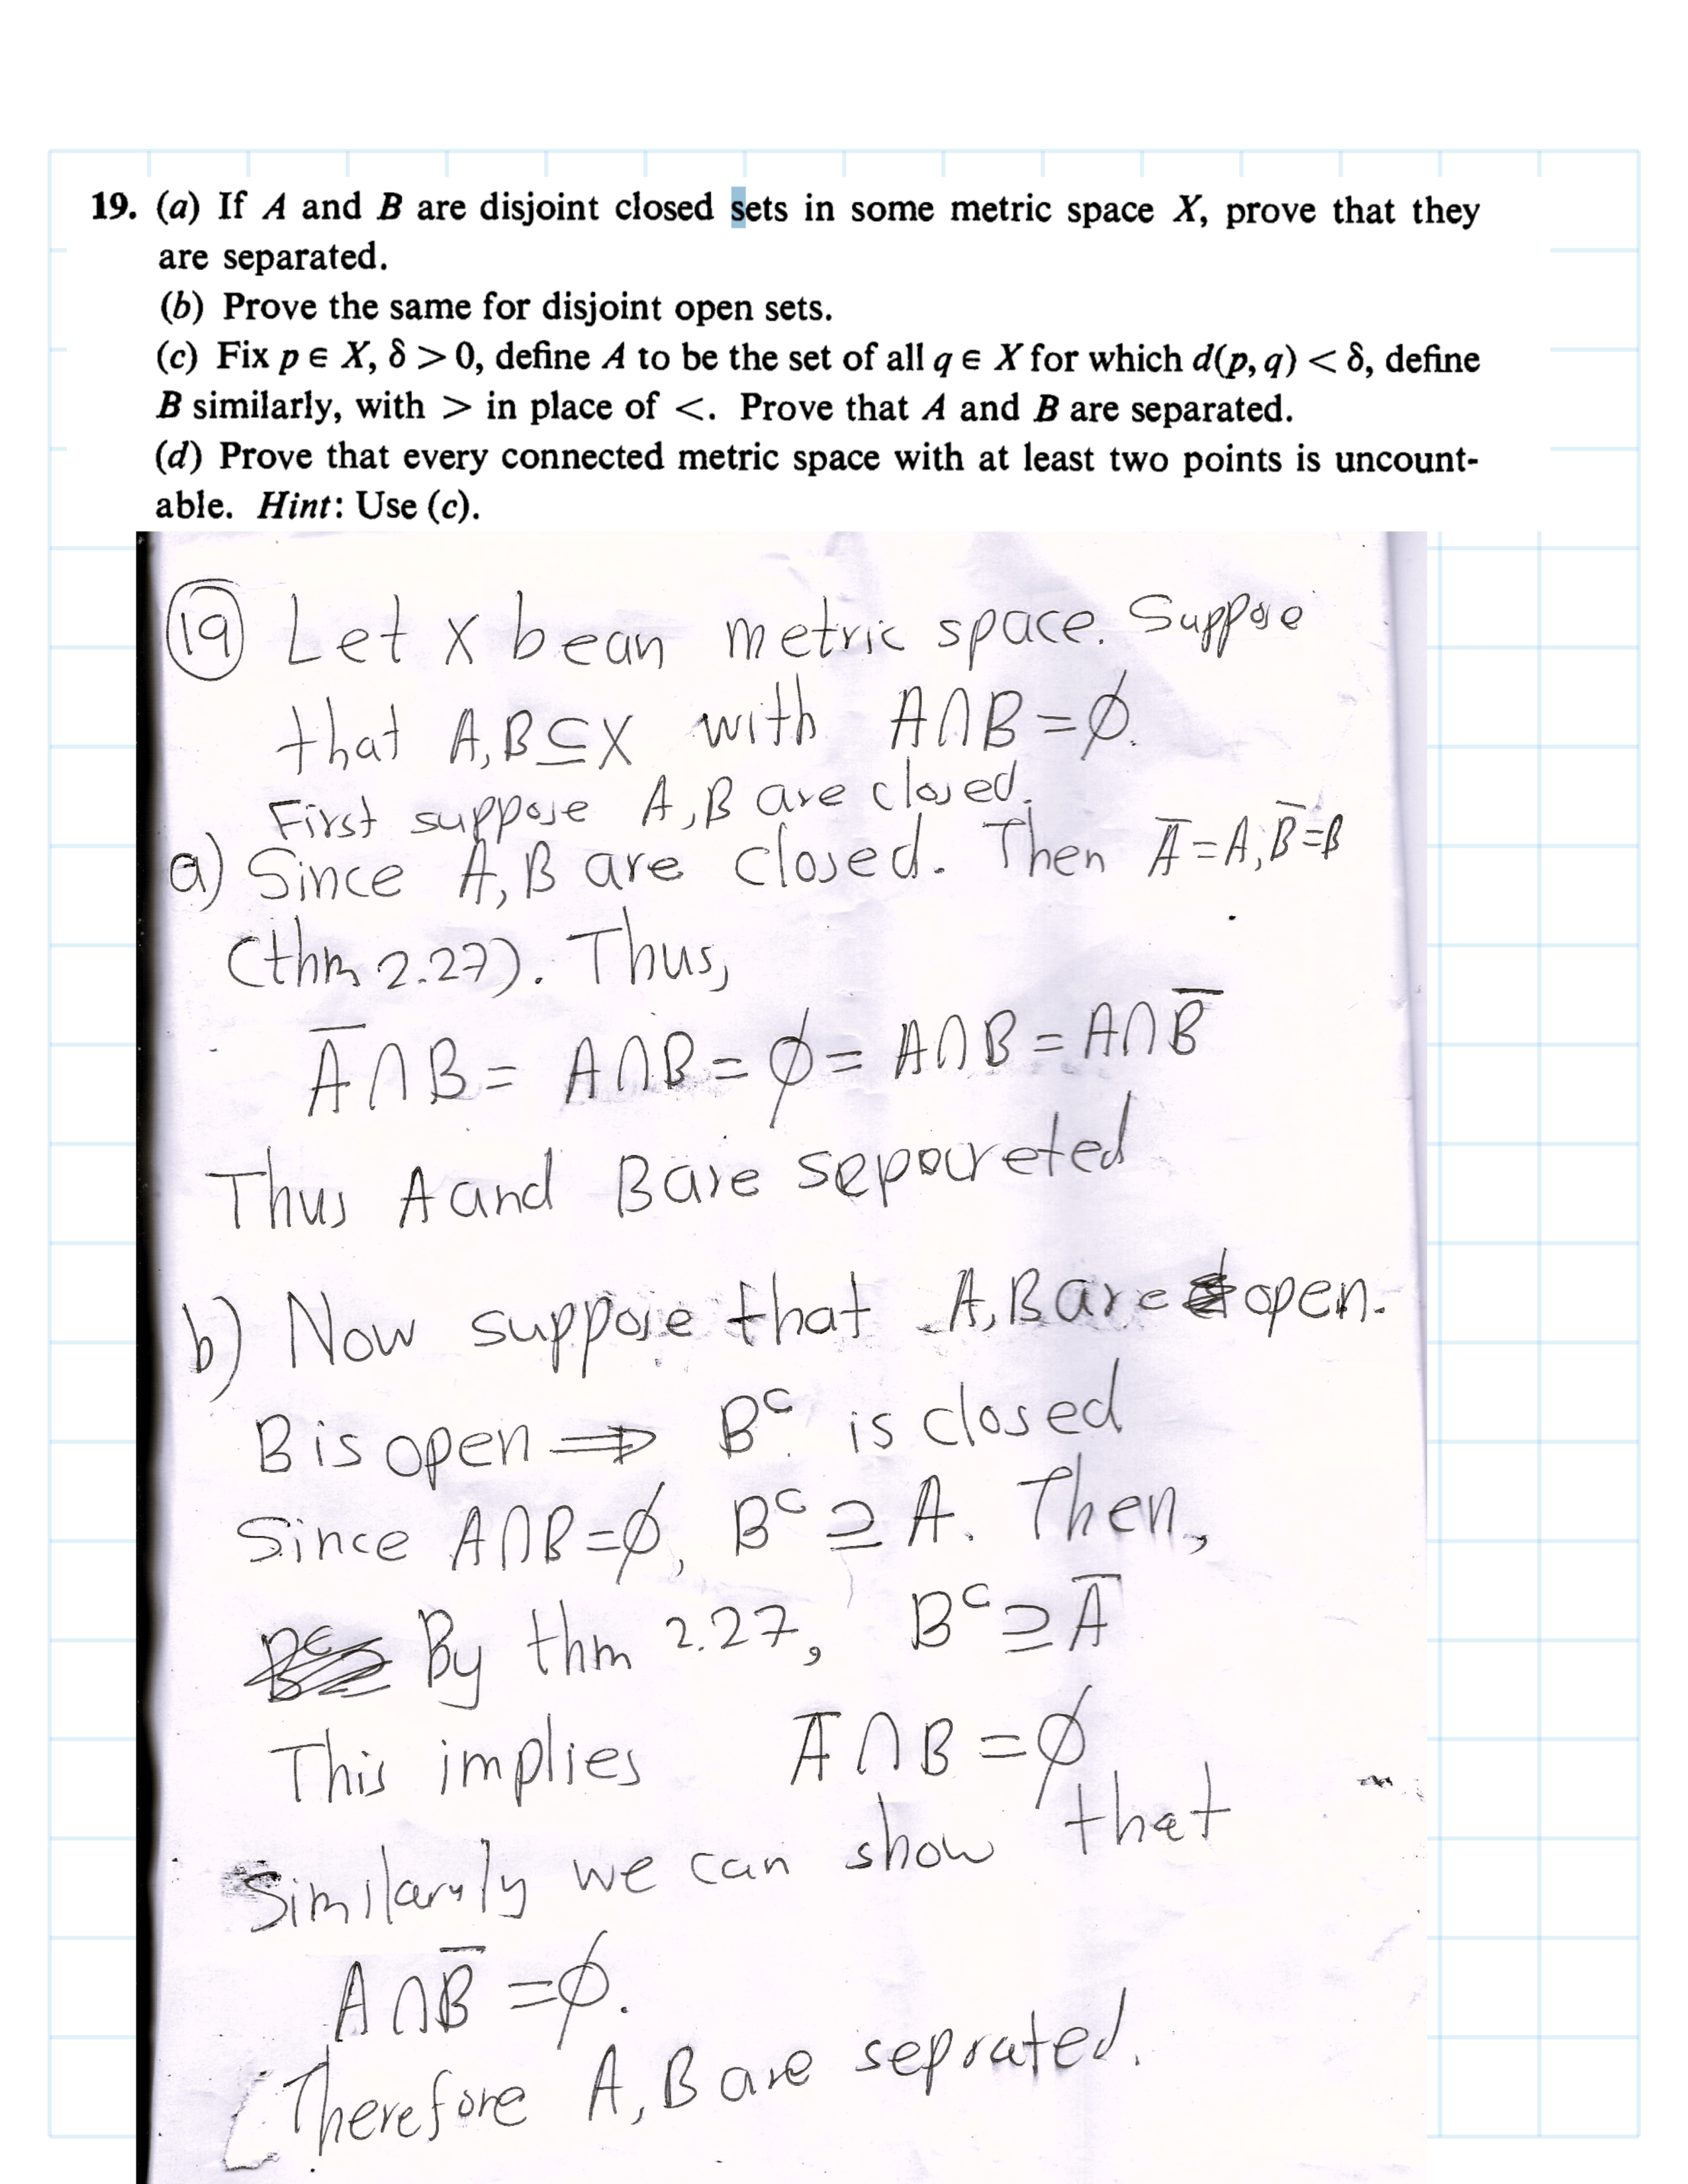 19. (a) If A and B are disjoint closed sets in some metric space X, prove that they
are separated.
(b) Prove the same for disjoint open sets.
(c) Fix p ∈ X, δ > 0, define A to be the set of all q ∈ X for which d(p, q) < δ, define
B similarly, with > in place of <. Prove that A and B are separated.
(d) Prove that every connected metric space with at least two points is uncount-
able. Hint: Use (c).
⑲ Let X be an metric space. Suppose
that A,B⊆X with A∩B=∅.
First suppose A,B are closed.
a) Since A,B are closed. Then A̅=A, B̅=B
(thm 2.27). Thus,
A̅∩B= A∩B=∅= A∩B=A∩B̅
Thus A and B are sepoureted
b) Now suppose that A,B are open.
B is open ⟹ Bᶜ is closed
Since A∩B=∅, Bᶜ⊇A. Then,
By thm 2.27, Bᶜ⊇A̅
This implies A̅∩B=∅
Similaruly we can show that
A∩B̅=∅.
Therefore A,B are seprated.